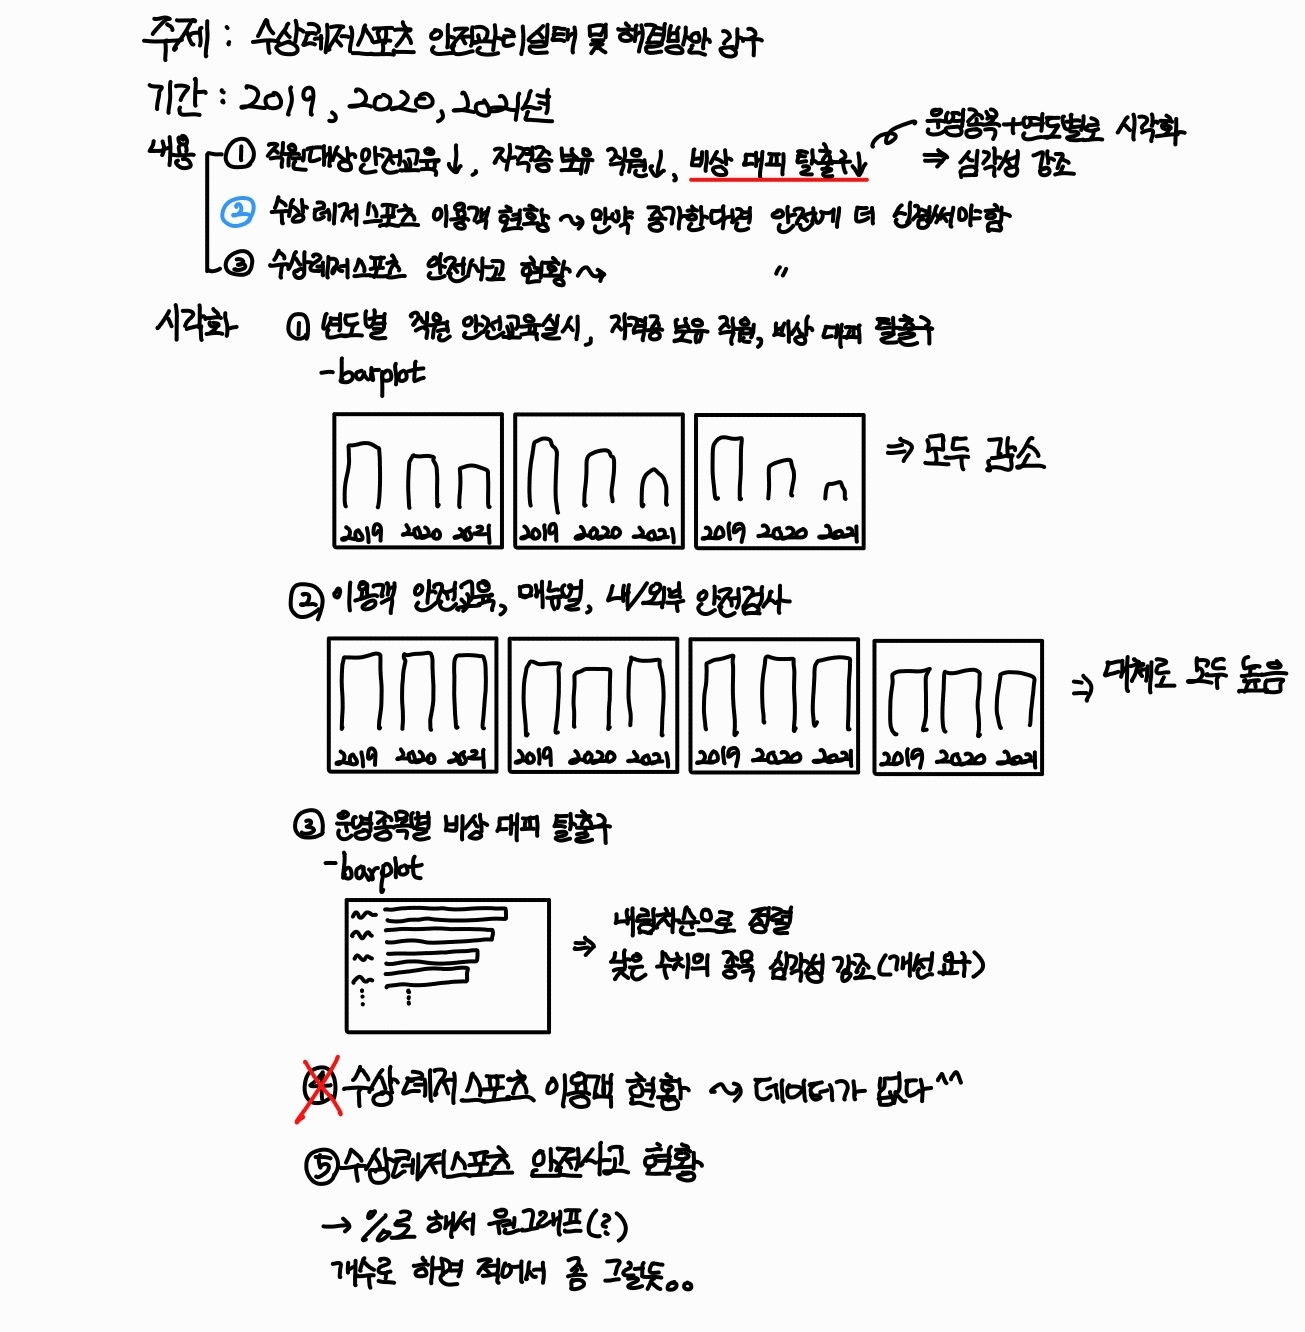 주제 : 수상레저스포츠 안전관리실태 및 해결방안 강구
기간 : 2019, 2020, 2021년
내용 ① 직원대상안전교육↓, 자격증 보유 직원↓, 비상 대피 탈출구↓
운영종목+연도별로 시각화
⇒ 심각성 강조
② 수상레저스포츠 이용객 현황 ~> 만약 증가한다면 안전에 더 신경써야함
③ 수상레저스포츠 안전사고 현황 ~> 〃
시각화 ① 년도별 직원 안전교육실시, 자격증 보유 직원, 비상 대피 탈출구
-barplot
2019 2020 2021 2019 2020 2021 2019 2020 2021 ⇒ 모두 감소
② 이용객 안전교육, 매뉴얼, 내/외부 안전검사
2019 2020 2021 2019 2020 2021 2019 2020 2021 2019 2020 2021 ⇒ 대체로 모두 높음
③ 운영종목별 비상 대피 탈출구
-barplot
⇒ 내림차순으로 정렬
낮은 수치의 종목 심각성 강조(개선 요구)
④ 수상레저스포츠 이용객 현황 ~> 데이터가 없다^^
⑤ 수상레저스포츠 안전사고 현황
→ %로 해서 원그래프(?)
개수로 하면 적어서 좀 그럴듯..